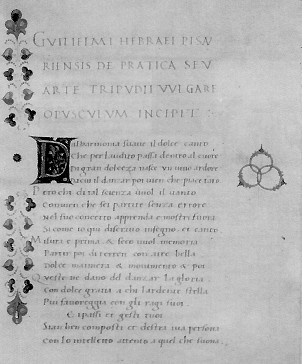 GVILIELMI HEBRAEI PISAV
RIENSIS DE PRATICA SEV
ARTE TRIPVDII VVLGARE
OPVSCVLVM INCIPIT
Dalharmonia suaue il dolce canto
Che per laudito passa dentro al cuore
Di gran dolcezza nasce un uiuo ardore
Da cui il danzar poi uien che piace tanto
Pero chi di tal scienza uuol il uanto
Conuien che sei partite senza errore
Nel suo concetto apprenda e mostri fuore
Si come io qui descriuo insegno et canto
Misura e prima & seco uuol memoria
Partir poi di terren con aire bella
Dolce maniera & mouimento & poi
Queste ne dano del danzar la gloria
Con dolce gratia a chi lardente stella
Piu fauoreggia con gli raggi suoi
E i passi et gesti tuoi
Sian ben composti et destra sua persona
Con lo intelletto attento a quel che suona